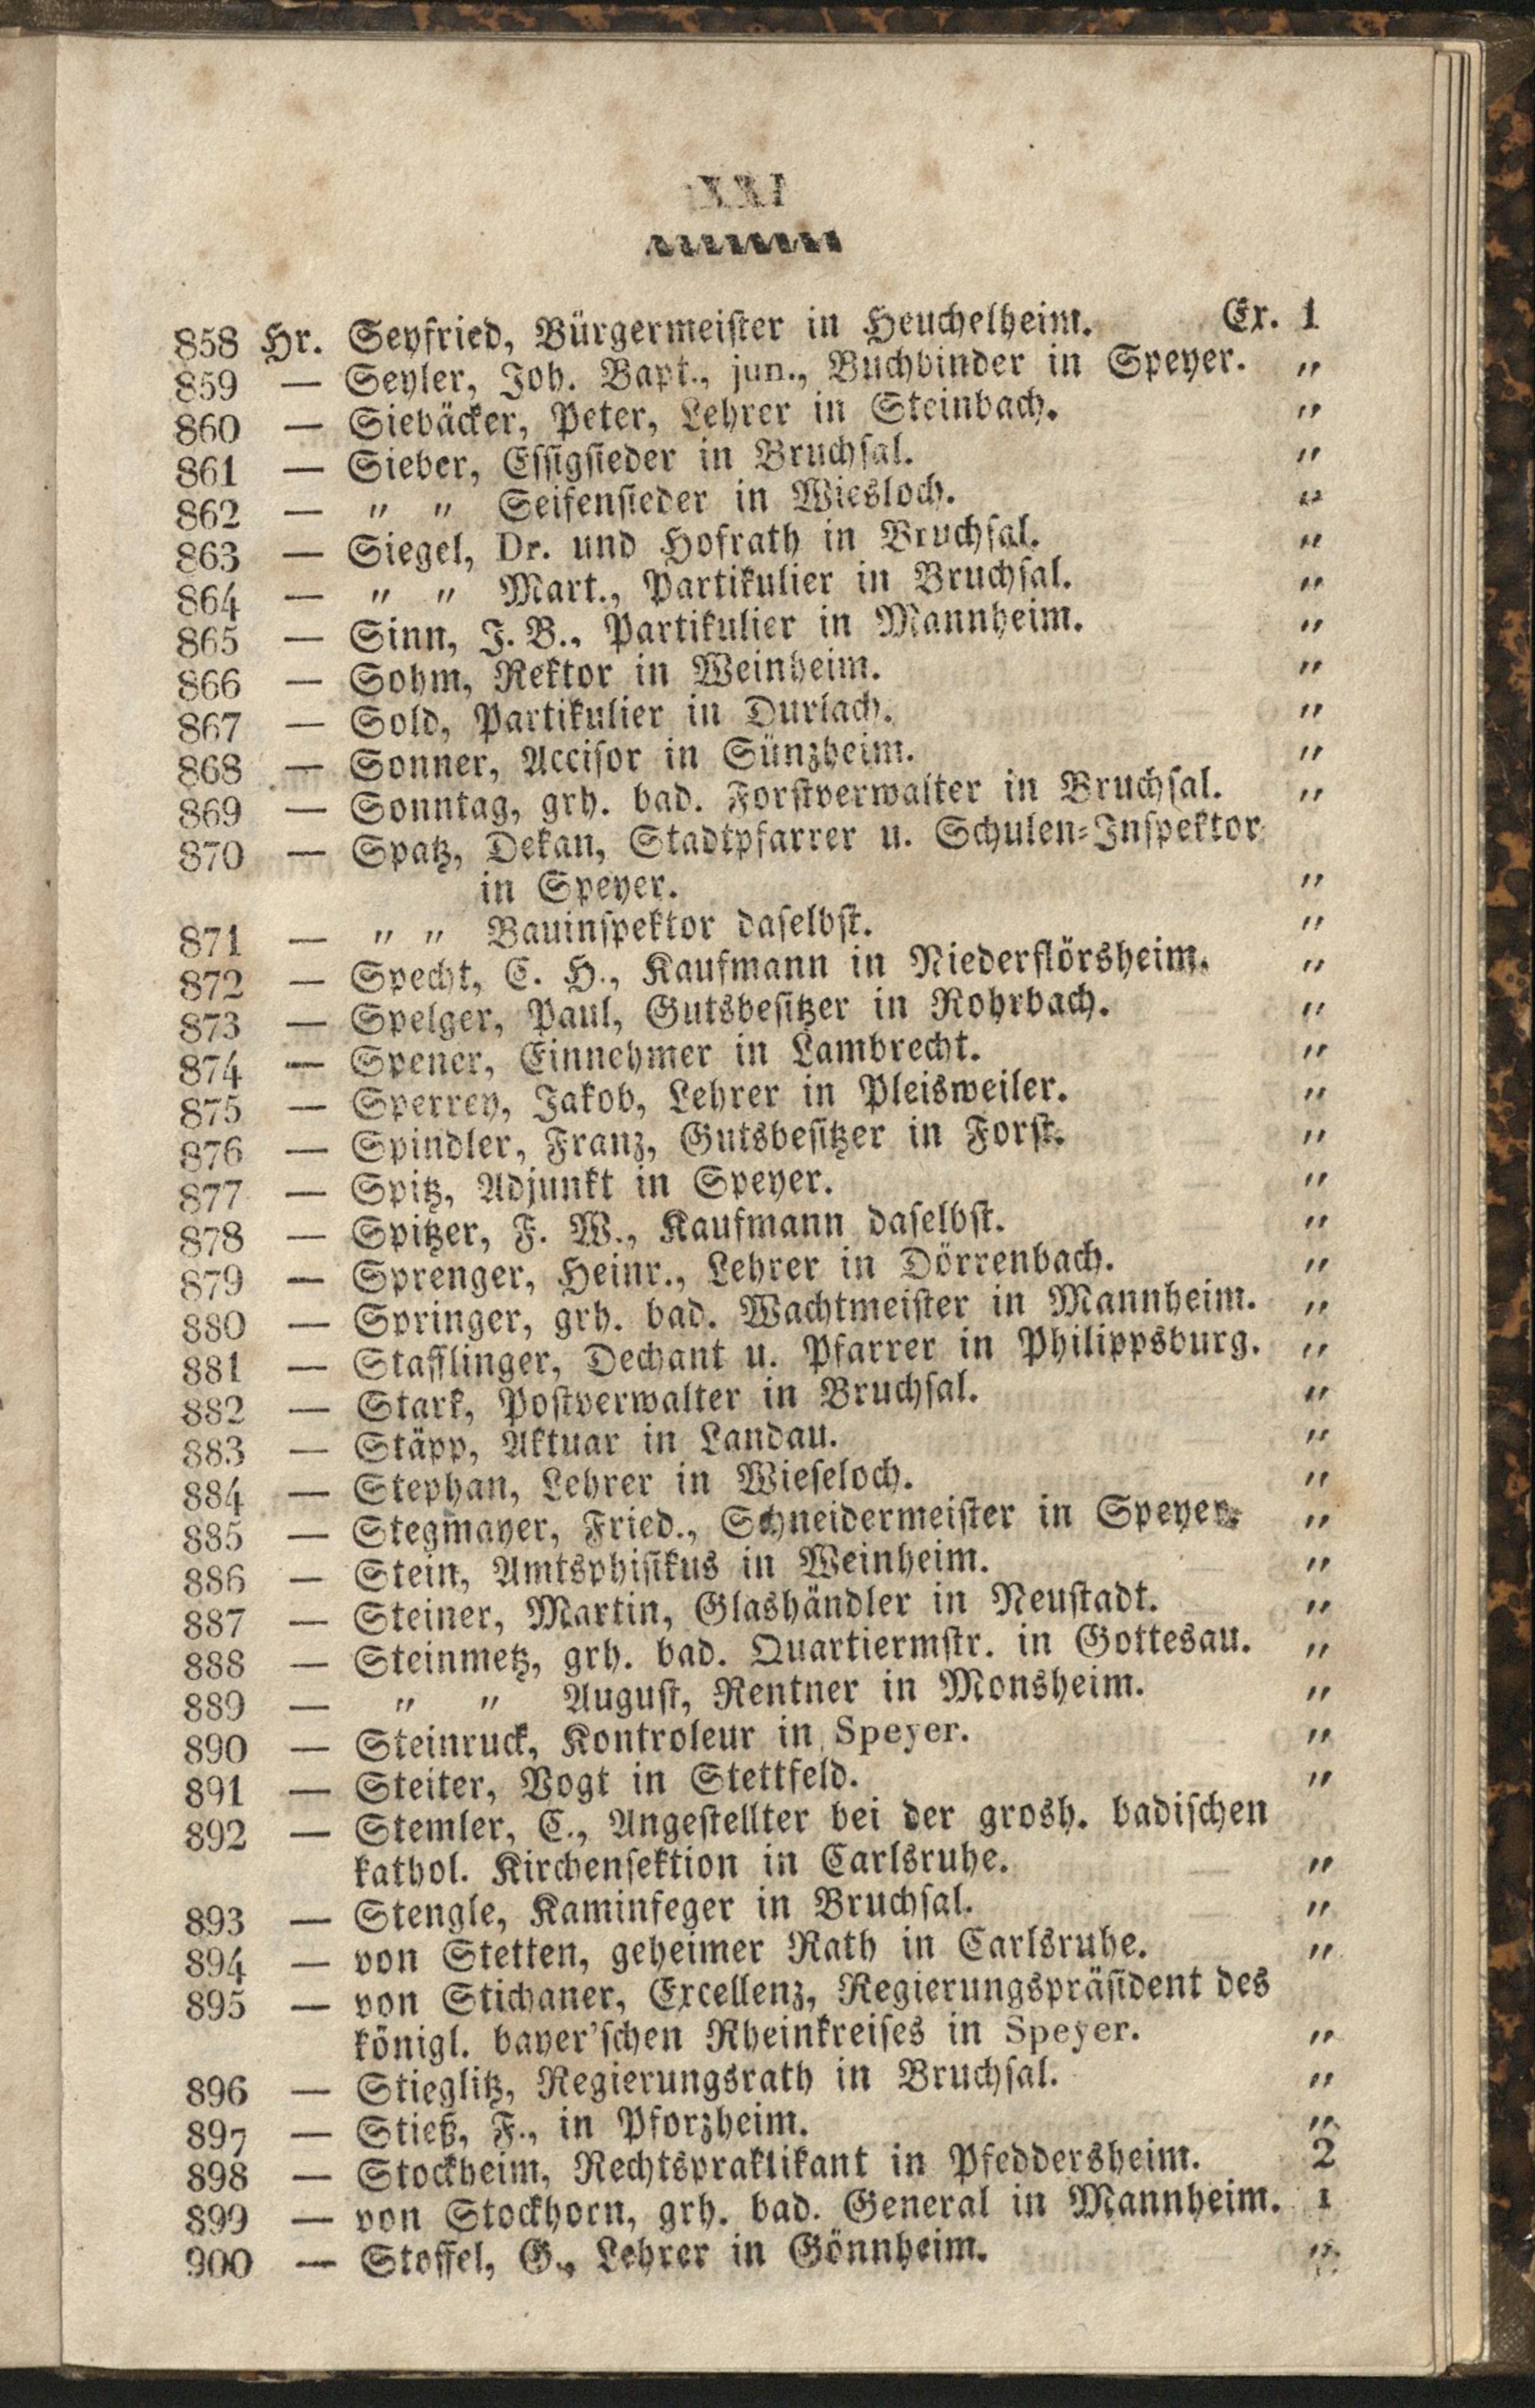 XXI
858 Hr. Seyfried, Bürgermeister in Heuchelheim. Ex. 1
859 — Seyler, Joh. Bapt., jun., Buchbinder in Speyer. „
860 — Siebäcker, Peter, Lehrer in Steinbach. „
861 — Sieber, Essigsieder in Bruchsal. „
862 — „ „ Seifensieder in Wiesloch. „
863 — Siegel, Dr. und Hofrath in Bruchsal. „
864 — „ „ Mart., Partikulier in Bruchsal. „
865 — Sinn, J. B., Partikulier in Mannheim. „
866 — Sohm, Rektor in Weinheim. „
867 — Sold, Partikulier in Durlach. „
868 — Sonner, Accisor in Sünzheim. „
869 — Sonntag, grh. bad. Forstverwalter in Bruchsal. „
870 — Spatz, Dekan, Stadtpfarrer u. Schulen-Inspektor
in Speyer. „
871 — „ „ Bauinspektor daselbst. „
872 — Specht, C. H., Kaufmann in Niederflörsheim. „
873 — Spelger, Paul, Gutsbesitzer in Rohrbach. „
874 — Spener, Einnehmer in Lambrecht. „
875 — Sperrey, Jakob, Lehrer in Pleisweiler. „
876 — Spindler, Franz, Gutsbesitzer in Forst. „
877 — Spitz, Adjunkt in Speyer. „
878 — Spitzer, F. W., Kaufmann daselbst. „
879 — Sprenger, Heinr., Lehrer in Dörrenbach. „
880 — Springer, grh. bad. Wachtmeister in Mannheim. „
881 — Stafflinger, Dechant u. Pfarrer in Philippsburg. „
882 — Stark, Postverwalter in Bruchsal. „
883 — Stäpp, Aktuar in Landau. „
884 — Stephan, Lehrer in Wieseloch. „
885 — Stegmayer, Fried., Schneidermeister in Speyer. „
886 — Stein, Amtsphisikus in Weinheim. „
887 — Steiner, Martin, Glashändler in Neustadt. „
888 — Steinmetz, grh. bad. Quartiermstr. in Gottesau. „
889 — „ „ August, Rentner in Monsheim. „
890 — Steinruck, Kontroleur in Speyer. „
891 — Steiter, Vogt in Stettfeld. „
892 — Stemler, C., Angestellter bei der grosh. badischen
kathol. Kirchensektion in Carlsruhe. „
893 — Stengle, Kaminfeger in Bruchsal. „
894 — von Stetten, geheimer Rath in Carlsruhe. „
895 — von Stichaner, Excellenz, Regierungspräsident des
königl. bayer'schen Rheinkreises in Speyer. „
896 — Stieglitz, Regierungsrath in Bruchsal. „
897 — Stieß, F., in Pforzheim. „
898 — Stockheim, Rechtspraktikant in Pfeddersheim. 2
899 — von Stockhorn, grh. bad. General in Mannheim. 1
900 — Stoffel, G., Lehrer in Gönnheim. „